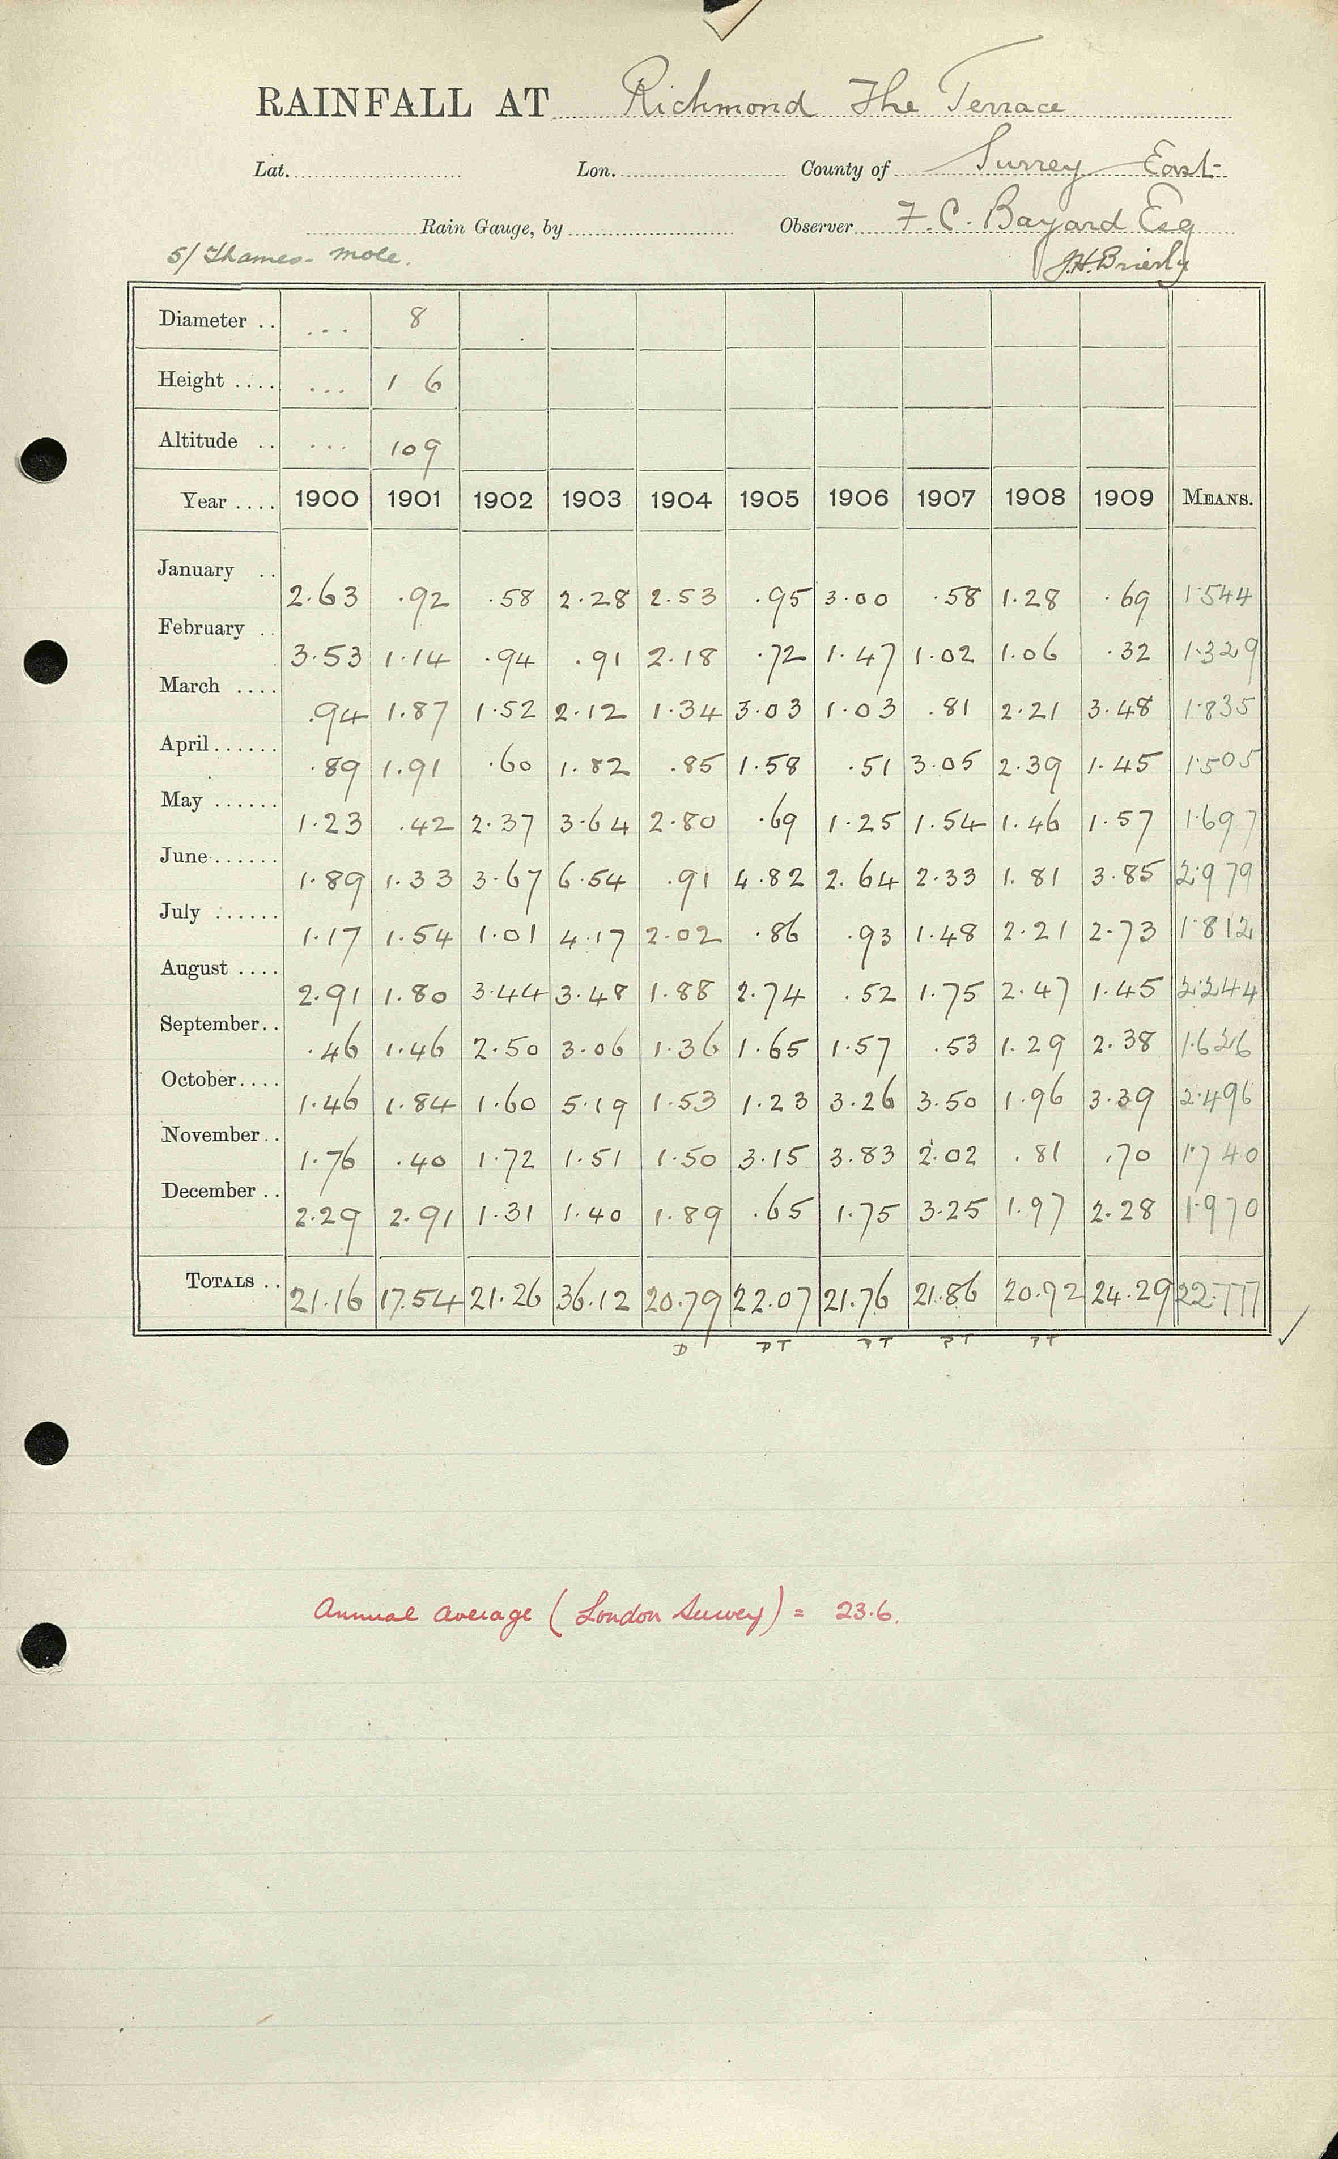 RAINFALL AT Richmond The Terrace
Lat. Lon. County of Surrey East
Rain Gauge, by Observer F. C. Bayard Esq
5/ Thames - Mole. J.H. Brierly
Diameter .. ... 8
Height .... ... 1 6
Altitude .. ... 109
Year .... 1900 1901 1902 1903 1904 1905 1906 1907 1908 1909 MEANS.
January .. 2.63 .92 .58 2.28 2.53 .95 3.00 .58 1.28 .69 1.544
February .. 3.53 1.14 .94 .91 2.18 .72 1.47 1.02 1.06 .32 1.329
March .... .94 1.87 1.52 2.12 1.34 3.03 1.03 .81 2.21 3.48 1.835
April...... .89 1.91 .60 1.82 .85 1.58 .51 3.05 2.39 1.45 1.505
May ...... 1.23 .42 2.37 3.64 2.80 .69 1.25 1.54 1.46 1.57 1.697
June...... 1.89 1.33 3.67 6.54 .91 4.82 2.64 2.33 1.81 3.85 2.979
July ...... 1.17 1.54 1.01 4.17 2.02 .86 .93 1.48 2.21 2.73 1.812
August .... 2.91 1.80 3.44 3.48 1.88 2.74 .52 1.75 2.47 1.45 2.244
September.. .46 1.46 2.50 3.06 1.36 1.65 1.57 .53 1.29 2.38 1.626
October.... 1.46 1.84 1.60 5.19 1.53 1.23 3.26 3.50 1.96 3.39 2.496
November.. 1.76 .40 1.72 1.51 1.50 3.15 3.83 2.02 .81 .70 1.740
December .. 2.29 2.91 1.31 1.40 1.89 .65 1.75 3.25 1.97 2.28 1.970
TOTALS .. 21.16 17.54 21.26 36.12 20.79 22.07 21.76 21.86 20.92 24.29 22.777
D PT PT PT PT
Annual Average (London Survey) = 23.6.